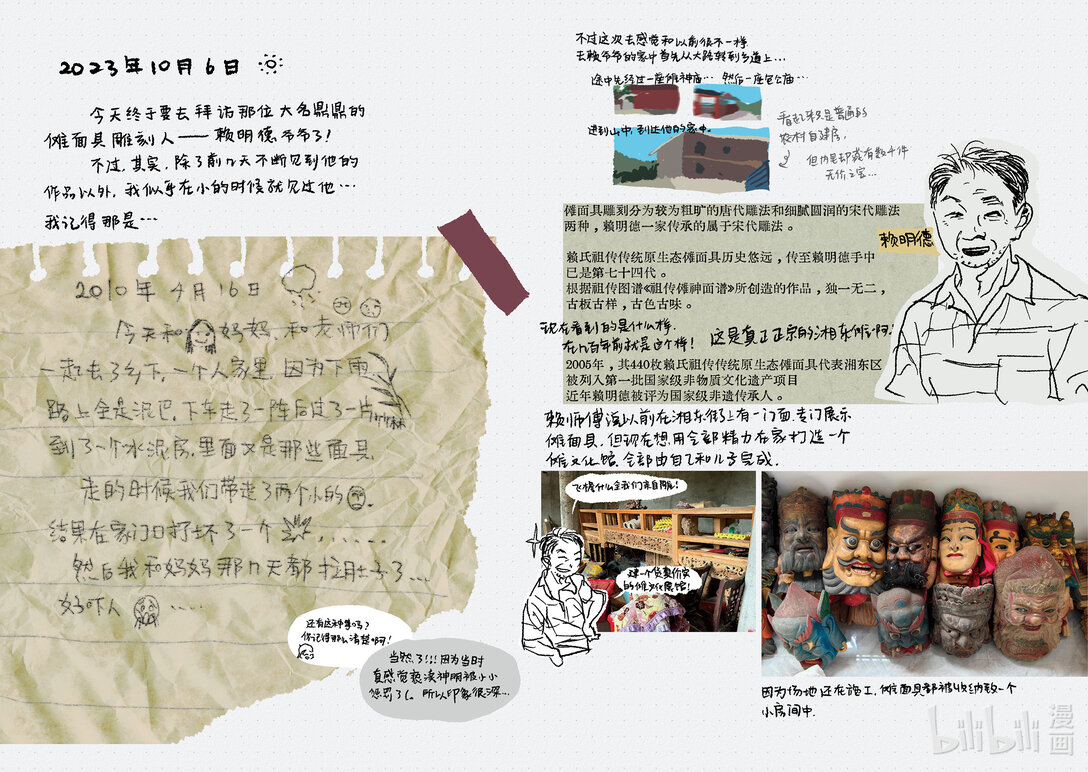 2023年10月6日
今天终于要去拜访那位大名鼎鼎的
傩面具雕刻人——赖明德爷爷了!
不过,其实,除了前几天不断见到他的
作品以外,我似乎在小的时候就见过他…
我记得那是…
2010年4月16日
今天和妈妈、和老师们
一起去了乡下,一个人家里,因为下雨
路上全是泥巴,下车走了一阵后过了一片
到了一个水泥房,里面又是那些面具,
走的时候我们带走了两个小的
结果在家门口打坏了一个......
然后我和妈妈那几天都拉肚子了...
好吓人.....
还有这种事吗?
你记得那么清楚啊!
当然了!!!因为当时
真感觉亵渎神明被小小
惩罚了(。所以印象很深...
不过这次去感觉和以前很不一样
去赖爷爷的家中首先从大路转到乡道上...
途中先经过一座傩神庙… 然后一座包公庙…
进到山中,到达他的家中.
看起来只是普通的
农村自建房,
但内里却藏有数千件
无价之宝...
傩面具雕刻分为较为粗旷的唐代雕法和细腻圆润的宋代雕法
两种,赖明德一家传承的属于宋代雕法。
赖明德
赖氏祖传传统原生态傩面具历史悠远,传至赖明德手中
已是第七十四代。
根据祖传图谱《祖传傩神面谱》所创造的作品,独一无二,
古板古样,古色古味。
现在看到的是什么样,
在几百年前就是这个样!
这是真正正宗的湘东傩啊
2005年,其440枚赖氏祖传传统原生态傩面具代表湘东区
被列入第一批国家级非物质文化遗产项目
近年赖明德被评为国家级非遗传承人。
赖师傅说以前在湘东街上有一门面,专门展示
傩面具,但现在想用全部精力在家打造一个
傩文化馆,全部由自己和儿子完成.
飞檐什么全我们亲自雕!
建一个货真价实
的傩文化展馆!
因为场地还在施工,傩面具都被收纳致一个
小房间中.
bilibili
漫画